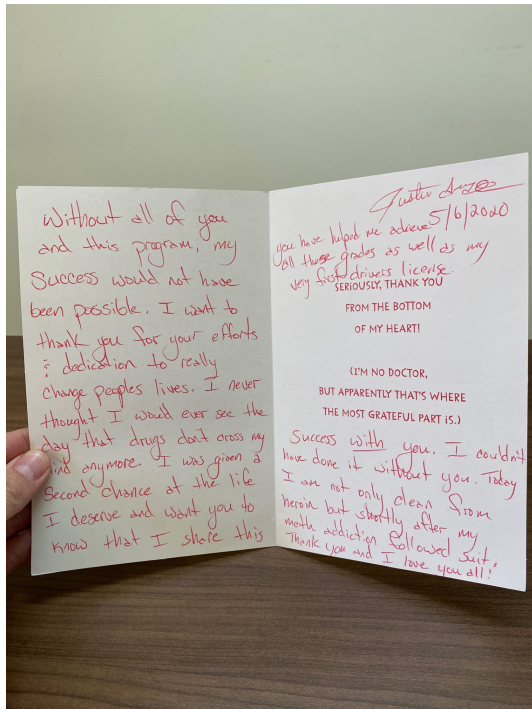 Without all of you
and this program, my
Success would not have
been possible. I want to
thank you for your efforts
& dedication to really
change peoples lives. I never
thought I would ever see the
day that drugs don't cross my
mind anymore. I was given a
Second chance at the life
I deserve and want you to
know that I share this
Justin
5/6/2020
you have helped me achieve
all these grades as well as my
very first drivers license.
SERIOUSLY, THANK YOU
FROM THE BOTTOM
OF MY HEART!
(I'M NO DOCTOR,
BUT APPARENTLY THAT'S WHERE
THE MOST GRATEFUL PART IS.)
Success with you. I couldn't
have done it without you. Today
I am not only clean from
heroin but shortly after my
meth addiction followed suit.
Thank you and I love you all!